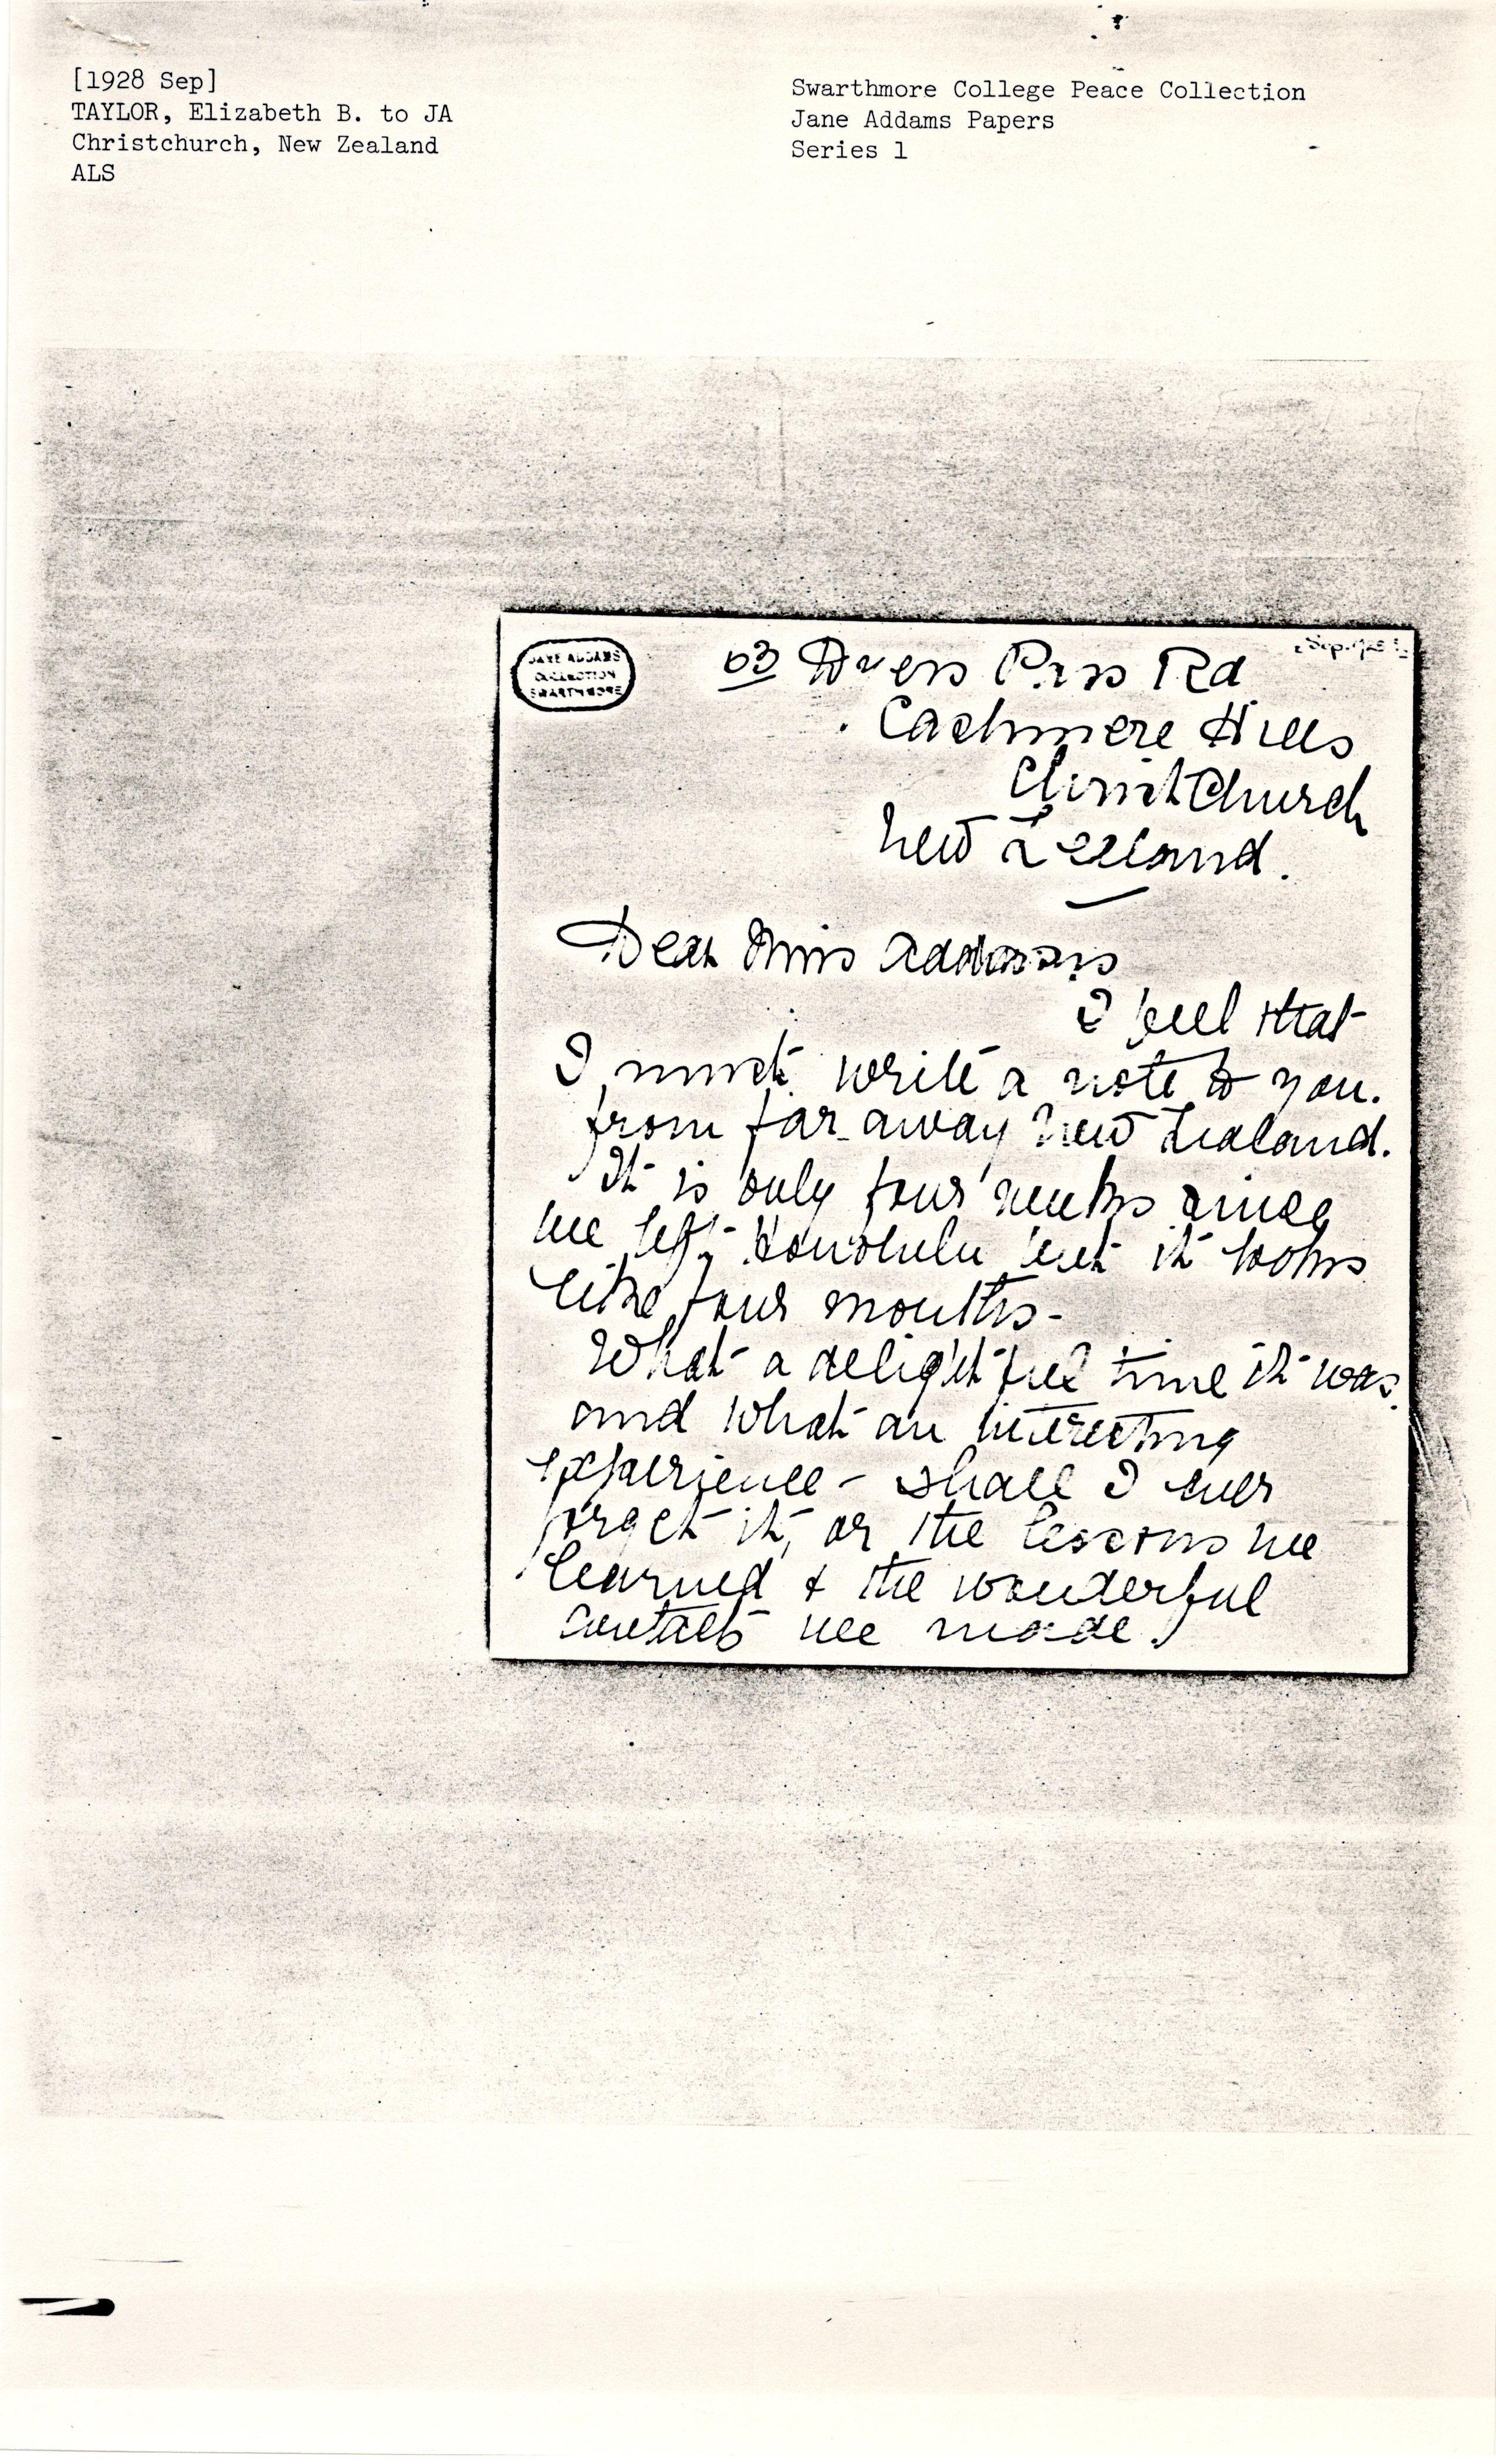 [1928 Sep]
TAYLOR, Elizabeth B. to JA
Christchurch, New Zealand
ALS
Swarthmore College Peace Collection
Jane Addams Papers
Series 1
JANE ADDAMS
COLLECTION
SWARTHMORE
63 Dyers Pass Rd
Cashmere Hills
ChristChurch
New Zealand.
Dear Miss Addams
I feel that
I must write a note to you.
from far away New Zealand.
It is only four weeks since
we left Honolulu but it looks
like four months-
What a delightful time it was
and what an interesting
experience - shall I ever
forget it, or the lessons we
learned & the wonderful
contacts we made!